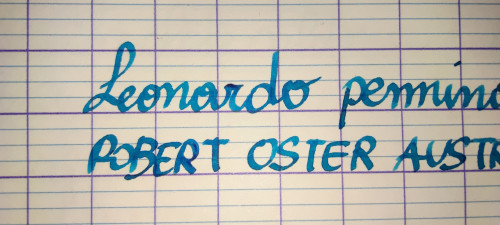 Leonardo pennino
ROBERT OSTER AUSTR